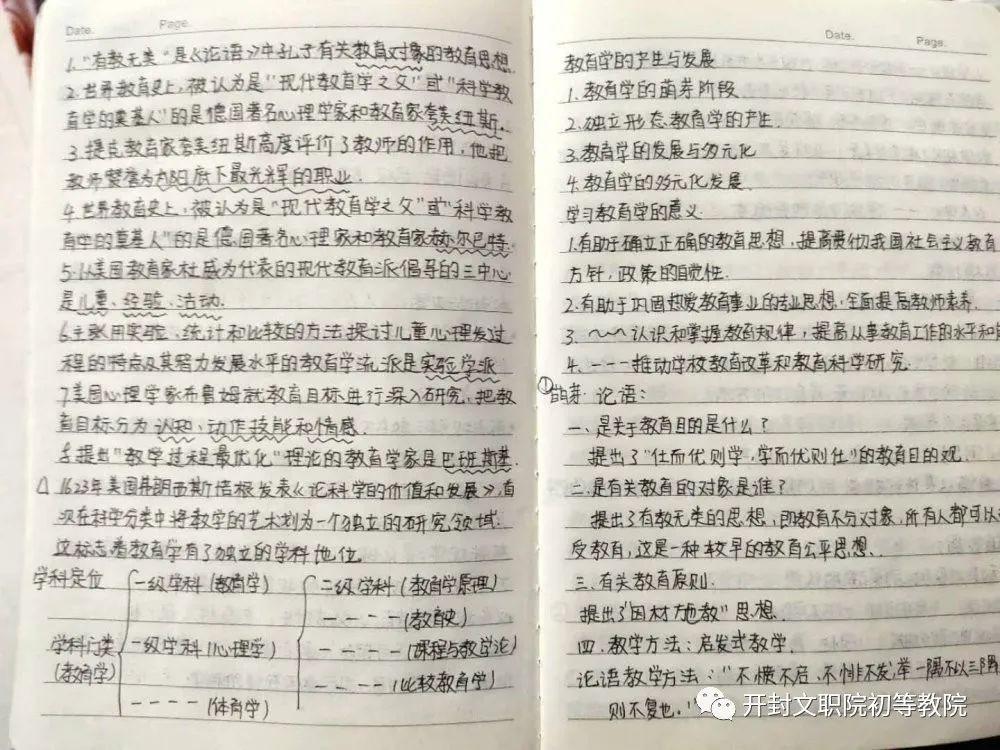 Date.
Page.
1."有教无类"是《论语》中孔子有关教育对象的教育思想.
2.世界教育史上,被认为是"现代教育学之父"或"科学教
育学的奠基人"的是德国著名心理学家和教育家夸美纽斯.
3.捷克教育家夸美纽斯高度评价了教师的作用,他把
教师赞誉为太阳底下最光辉的职业.
4.世界教育史上,被认为是"现代教育学之父"或"科学教
育学的奠基人"的是德国著名心理家和教育家赫尔巴特.
5.以美国教育家杜威为代表的现代教育派倡导的三中心
是儿童、经验、活动.
6.主张用实验、统计和比较的方法探讨儿童心理发过
程的特点及其智力发展水平的教育学流派是实验学派
7.美国心理学家布鲁姆就教育目标进行深入研究,把教
育目标分为认知、动作技能和情感.
8.提出"教学过程最优化"理论的教育学家是巴班斯基.
△1623年英国弗朗西斯培根发表《论科学的价值和发展》,首
次在科学分类中将教学的艺术划为一个独立的研究领域.
这标志着教育学有了独立的学科地位.
学科定位
一级学科(教育学)
二级学科(教育学原理)
- - - -(教育史)
学科门类
(教育学)
一级学科(心理学)
- - - -(课程与教学论)
- - - -(比较教育学)
- - - -(体育学)
Date.
Page.
教育学的产生与发展
1.教育学的萌芽阶段.
2.独立形态教育学的产生.
3.教育学的发展与多元化
4.教育学的多元化发展.
学习教育学的意义.
1.有助于确立正确的教育思想,提高贯彻我国社会主义教育
方针,政策的自觉性.
2.有助于巩固热爱教育事业的专业思想,全面提高教师素养.
3.~~~认识和掌握教育规律,提高从事教育工作的水平和
4.---推动学校教育改革和教育科学研究.
①萌芽.论语:
一、是关于教育目的是什么?
提出了"仕而优则学,学而优则仕"的教育目的观.
二.是有关教育的对象是谁?
提出了有教无类的思想,即教育不分对象,所有人都可以
受教育,这是一种较早的教育公平思想.
三.有关教育原则.
提出了"因材施教"思想.
四.教学方法:启发式教学.
论语教学方法:"不愤不启、不悱不发,举一隅不以三隅
则不复也."
开封文职院初等教院